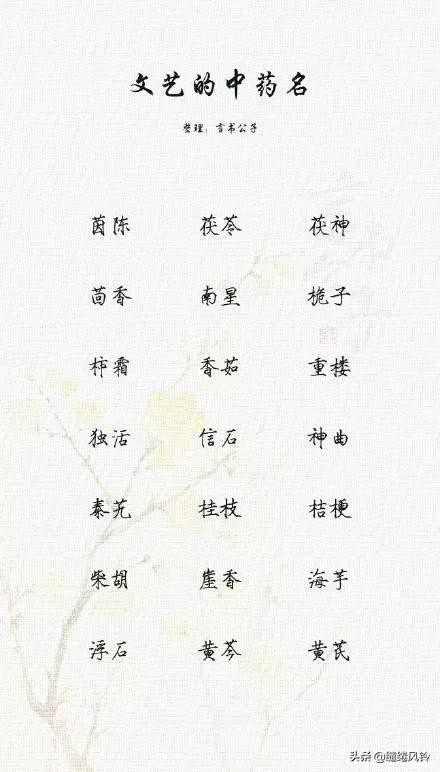 文艺的中药名
整理：言书公子
茵陈 茯苓 茯神
茴香 南星 桅子
柿霜 香茹 重楼
独活 信石 神曲
秦艽 桂枝 桔梗
柴胡 崖香 海芋
浮石 黄芩 黄芪
头条 @缱绻风铃